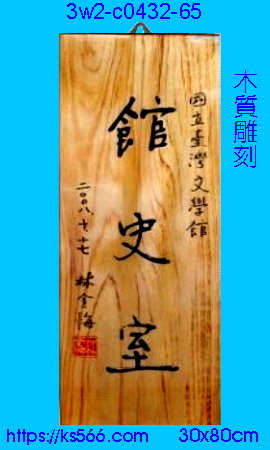 3w2-c0432-65
木質雕刻
國立臺灣文學館
館史室
林金悔
https://ks566.com
30x80cm